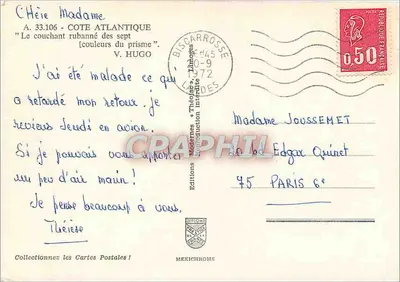 Chère Madame
A. 33.106 - COTE ATLANTIQUE
"Le couchant rubanné des sept
[couleurs du prisme".
V. HUGO
J'ai été malade ce qui
a retardé mon retour. je
reviens Jeudi en avion.
Si je pouvais vous apporter
un peu d'air marin!
Je pense beaucoup à vous.
Thérèse
Collectionnez les Cartes Postales !
Editions Modernes "Théojac", Limoges
Reproduction interdite
MEXICHROME
BISCARROSSE
1972
LANDES
0,50
Madame JOUSSEMET
Edgar Quinet
75 PARIS 6e
CRAPHIL